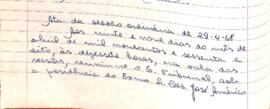 Ata da sessão ordinária de 29-4-68
Aos vinte e nove dias do mês de
abril de mil novecentos e sessenta e
oito, às dezessete horas, na sala das
sessões, reuniu-se o E. Tribunal, sob
a presidência do Exmo. Sr. Des. José Américo